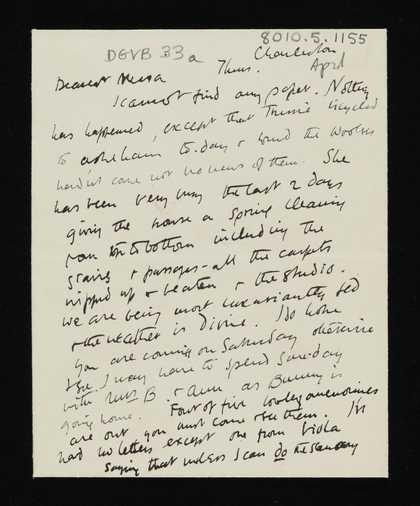 8010.5.1155
DGVB 33a
Charleston
Thurs. April
Dearest
I cannot find any paper. Nothing
has happened, except that Trissie bicycled
to Asheham to-day & found the Woolves
hadn't come nor no news of them. She
has been very busy the last 2 days
giving the house a spring cleaning
from top to bottom including the
stairs & passages - all the carpets
ripped up & beaten & the studio.
We are being most luxuriantly fed
& the weather is divine. I do hope
you are coming on Saturday otherwise
I may have to spend Sunday
with Mrs B. & Ann as Bunny is
going home. Four or five lovely anemones
are out you must come & see them. I've
had no letters except one from Viola
saying that unless I can do the